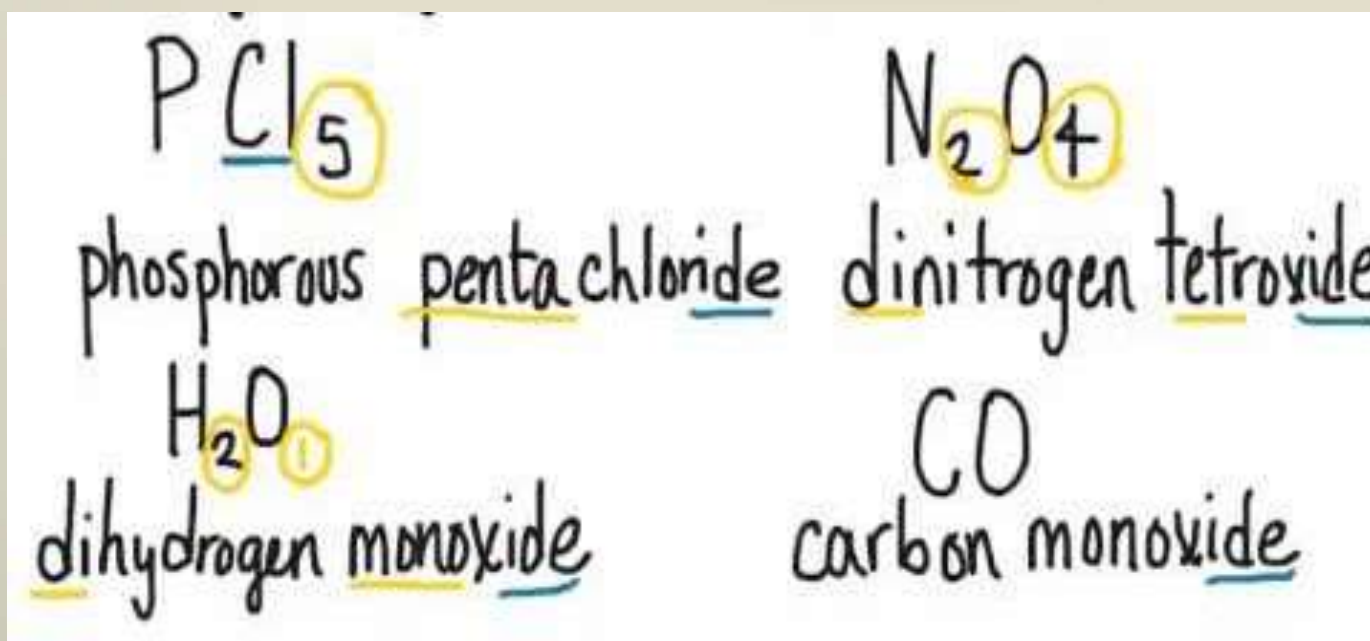 PCl5
phosphorous pentachloride
N2O4
dinitrogen tetroxide
H2O1
dihydrogen monoxide
CO
carbon monoxide